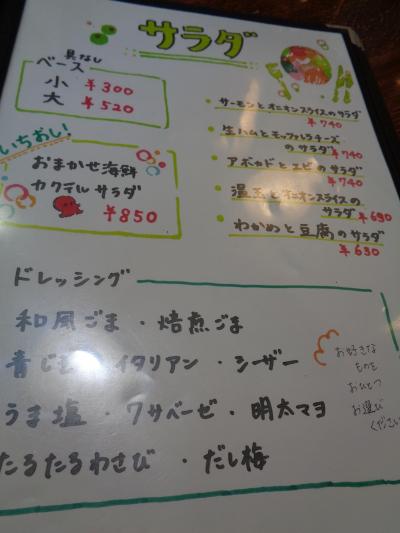 サラダ
具なし
ベース
小 ¥300
大 ¥520
いちおし!
おまかせ海鮮
カクテルサラダ
¥850
・サーモンとオニオンスライスのサラダ
¥740
・生ハムとモッツァレラチーズ
のサラダ
¥740
・アボカドとエビのサラダ
¥740
・温玉とオニオンスライスの
サラダ ¥690
・わかめと豆腐のサラダ
¥630
ドレッシング
和風ごま・焙煎ごま
青じそ・イタリアン・シーザー
うま塩・ワサベーゼ・明太マヨ
たるたるわさび・だし梅
お好きな
ものを
おひとつ
お選び
ください